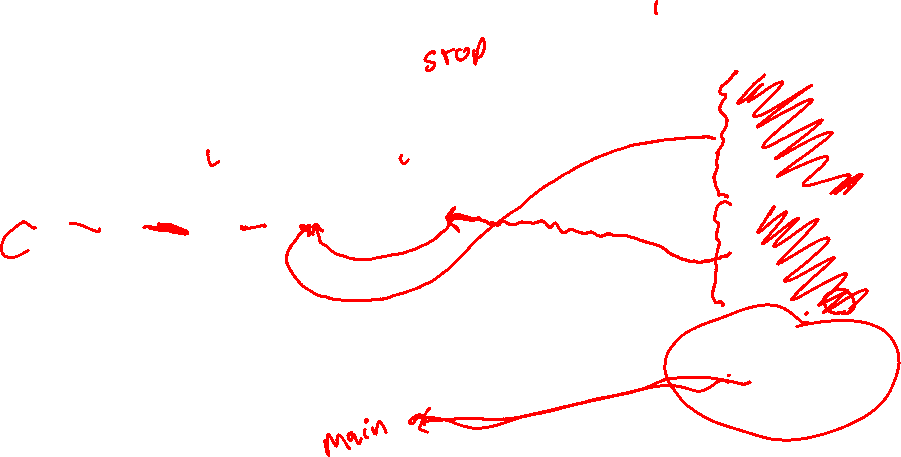 stop
main